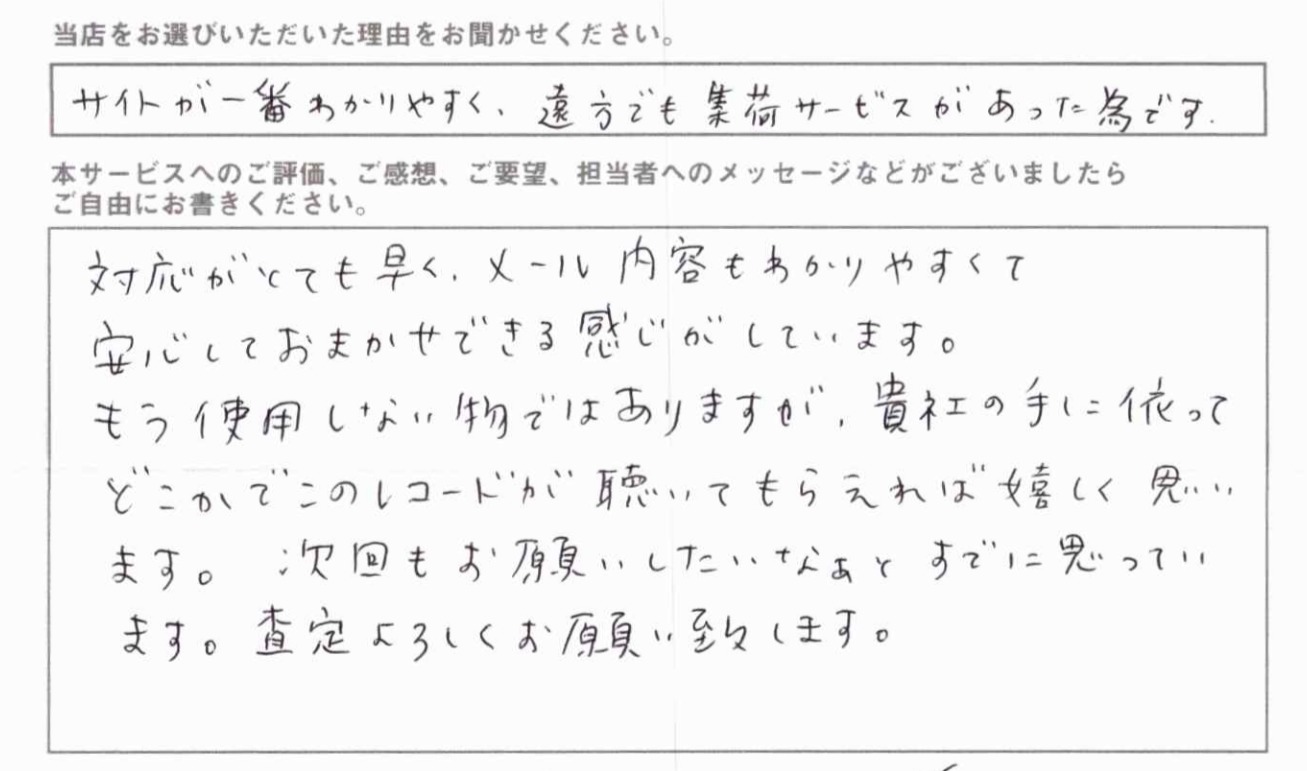 当店をお選びいただいた理由をお聞かせください。
サイトが一番わかりやすく、遠方でも集荷サービスがあった為です.
本サービスへのご評価、ご感想、ご要望、担当者へのメッセージなどがございましたら
ご自由にお書きください。
対応がとても早く、メール内容もわかりやすくて
安心しておまかせできる感じがしています。
もう使用しない物ではありますが、貴社の手に依って
どこかでこのレコードが聴いてもらえれば嬉しく思い
ます。 次回もお願いしたいなぁとすでに思ってい
ます。査定よろしくお願い致します。